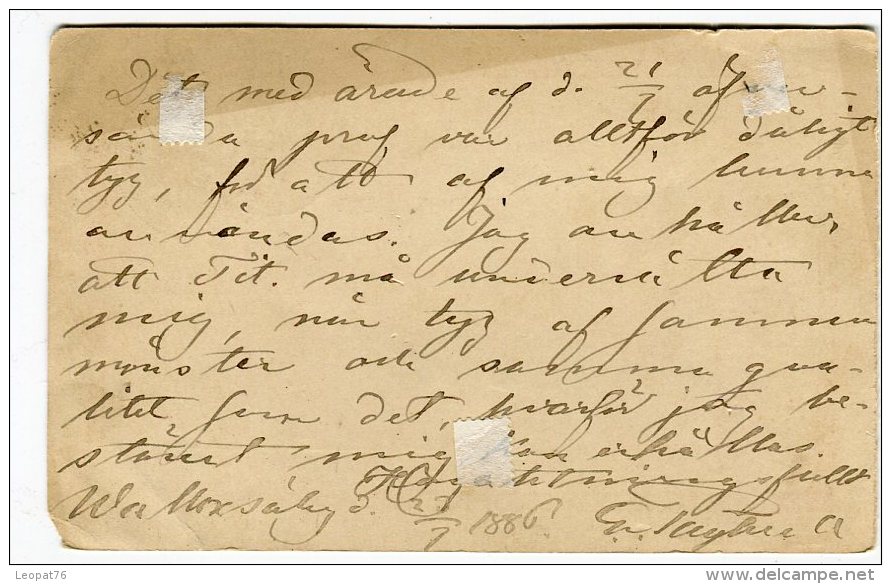 Det med ärade af d. 21/7 öfver-
sända prof var alltför dåligt
tyg, för att af mig kunna
användas. Jag anhåller
att Tit. må underrätta
mig, när tyg af samma
mönster och samma qva-
litet som det, hvarför jag be-
stämt mig kan erhållas.
Högaktningsfullt
d. 23/7 1886.
Leopat76
delcampe.net